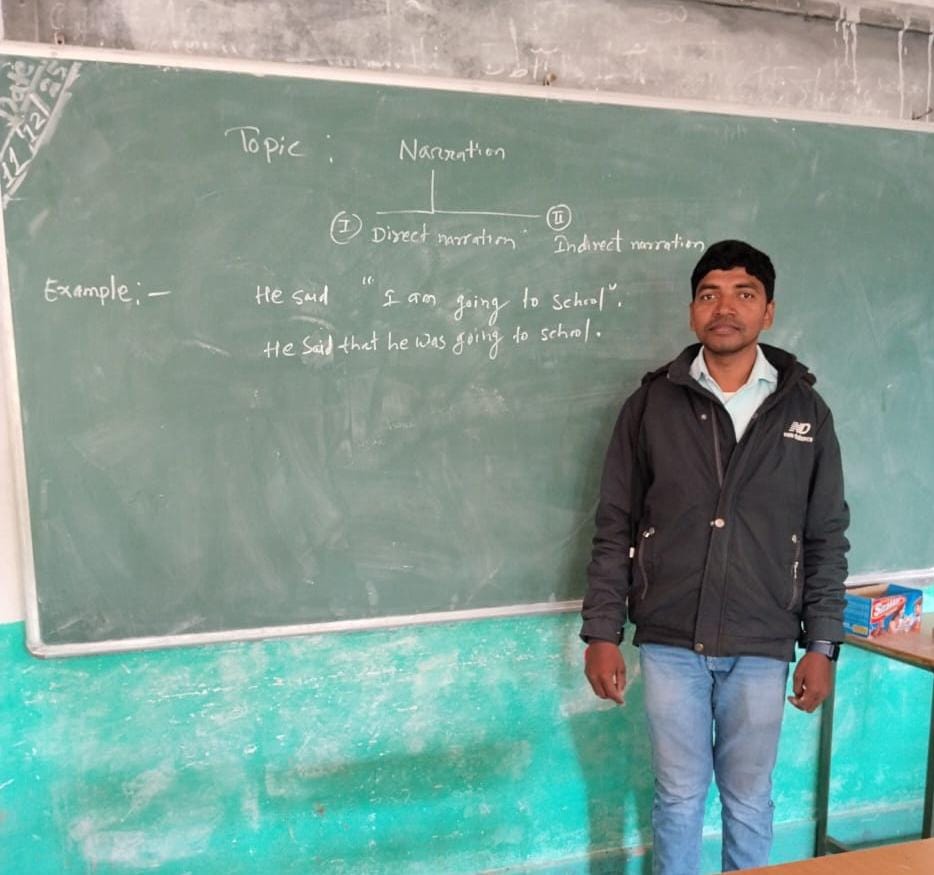 Date
11/12/25
Topic : Narration
I Direct narration II Indirect narration
Example:- He said "I am going to school".
He Said that he was going to school.